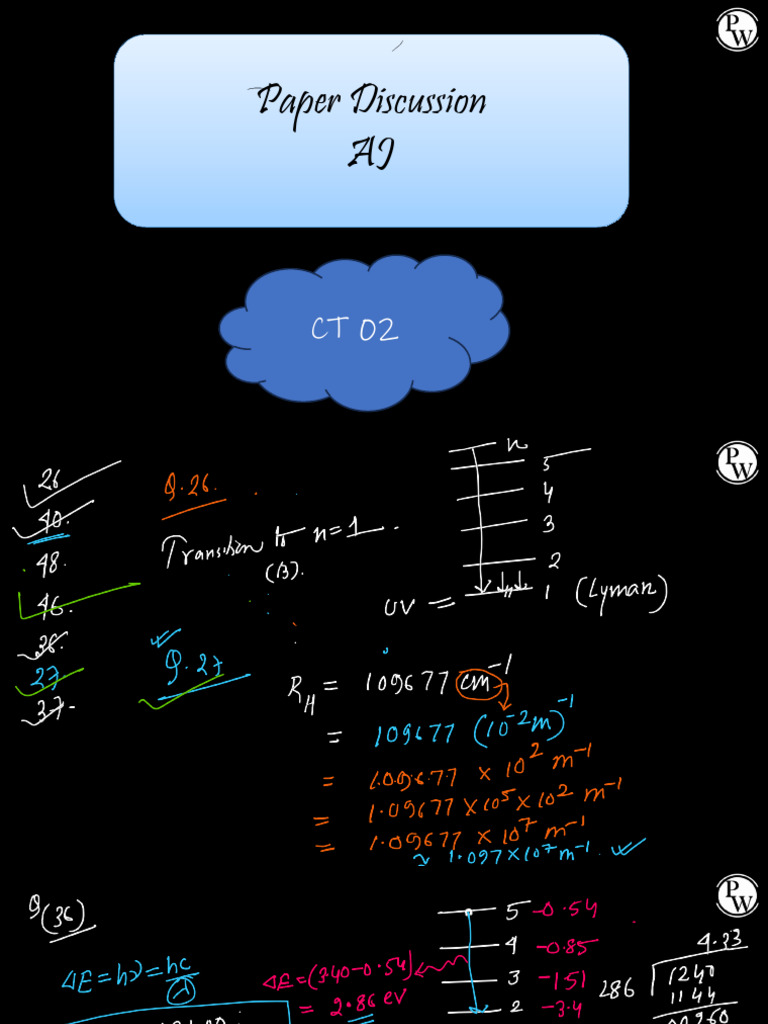 PW
Paper Discussion
AJ
CT 02
PW
26
40.
48.
46.
38.
27
37.
Q.26.
Transition to n=1.
(B).
n
5
4
3
2
1 (Lyman)
UV =
Q.27
R_H = 109677 cm⁻¹
= 109677 (10⁻²m)⁻¹
= 109677 × 10² m⁻¹
= 1.09677 × 10⁵ × 10² m⁻¹
= 1.09677 × 10⁷ m⁻¹
≈ 1.097 × 10⁷ m⁻¹.
PW
Q(36)
ΔE = hν = hc/λ
ΔE = (3.40-0.54)
= 2.86 eV
5 -0.54
4 -0.85
3 -1.51
2 -3.4
4.33
286 1240
1144